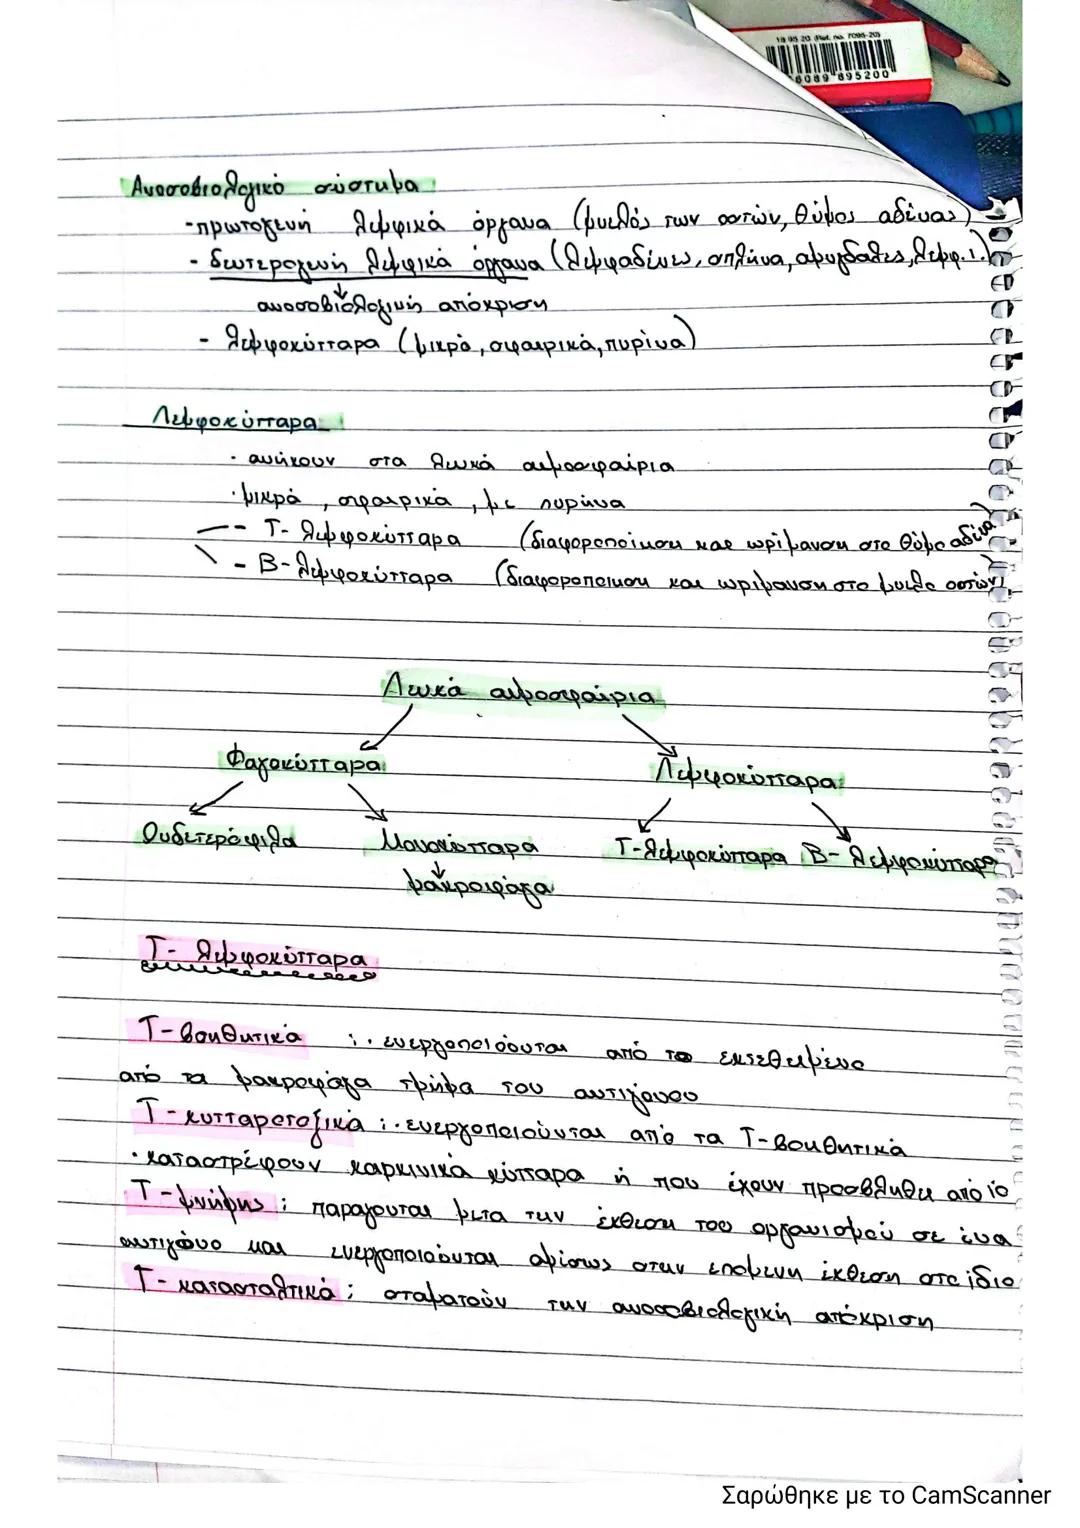 18 95 20 (Ref. no. 7095-20)
6089 895200
Ανοσοβιολογικό σύστημα
-πρωτογενή λεμφικά όργανα (μυελός των οστών, θύμος αδένας)
- δευτερογενή λεμφικά όργανα (λεμφαδένες, σπλήνα, αμυγδαλές, λεμφ.ι.)
ανοσοβιολογική απόκριση
- λεμφοκύτταρα (μικρά, σφαιρικά, πυρίνα)
Λεμφοκύτταρα
· ανήκουν στα λευκά αιμοσφαίρια
· μικρά, σφαιρικά, με πυρήνα
- Τ- λεμφοκύτταρα (διαφοροποίηση και ωρίμανση στο θύμο αδένα)
- Β- λεμφοκύτταρα (διαφοροποιηση και ωρίμανση στο μυελο οστών)
Λευκά αιμοσφαίρια
Φαγοκύτταρα Λεμφοκύτταρα
Ουδετερόφιλα Μονοκύτταρα Τ-λεμφοκύτταρα Β- λεμφοκύτταρα
μακροφάγα
Τ- λεμφοκύτταρα
Τ-βοηθητικά : · ενεργοποιόυνται από το εκτεθειμένο
από τα μακροφάγα τμήμα του αντιγόνου
Τ-κυτταροτοξικά : · ενεργοποιούνται από τα Τ-βοηθητικά
· καταστρέφουν καρκινικά κύτταρα ή που έχουν προσβληθει από ιο
Τ-μνήμης : παραγονται μετα την έκθεση του οργανισμού σε ένα
αντιγόνο και ενεργοποιόυνται αμέσως στην επόμενη έκθεση στο ίδιο
Τ- κατασταλτικά : σταματούν την ανοσοβιολογική απόκριση
Σαρώθηκε με το CamScanner